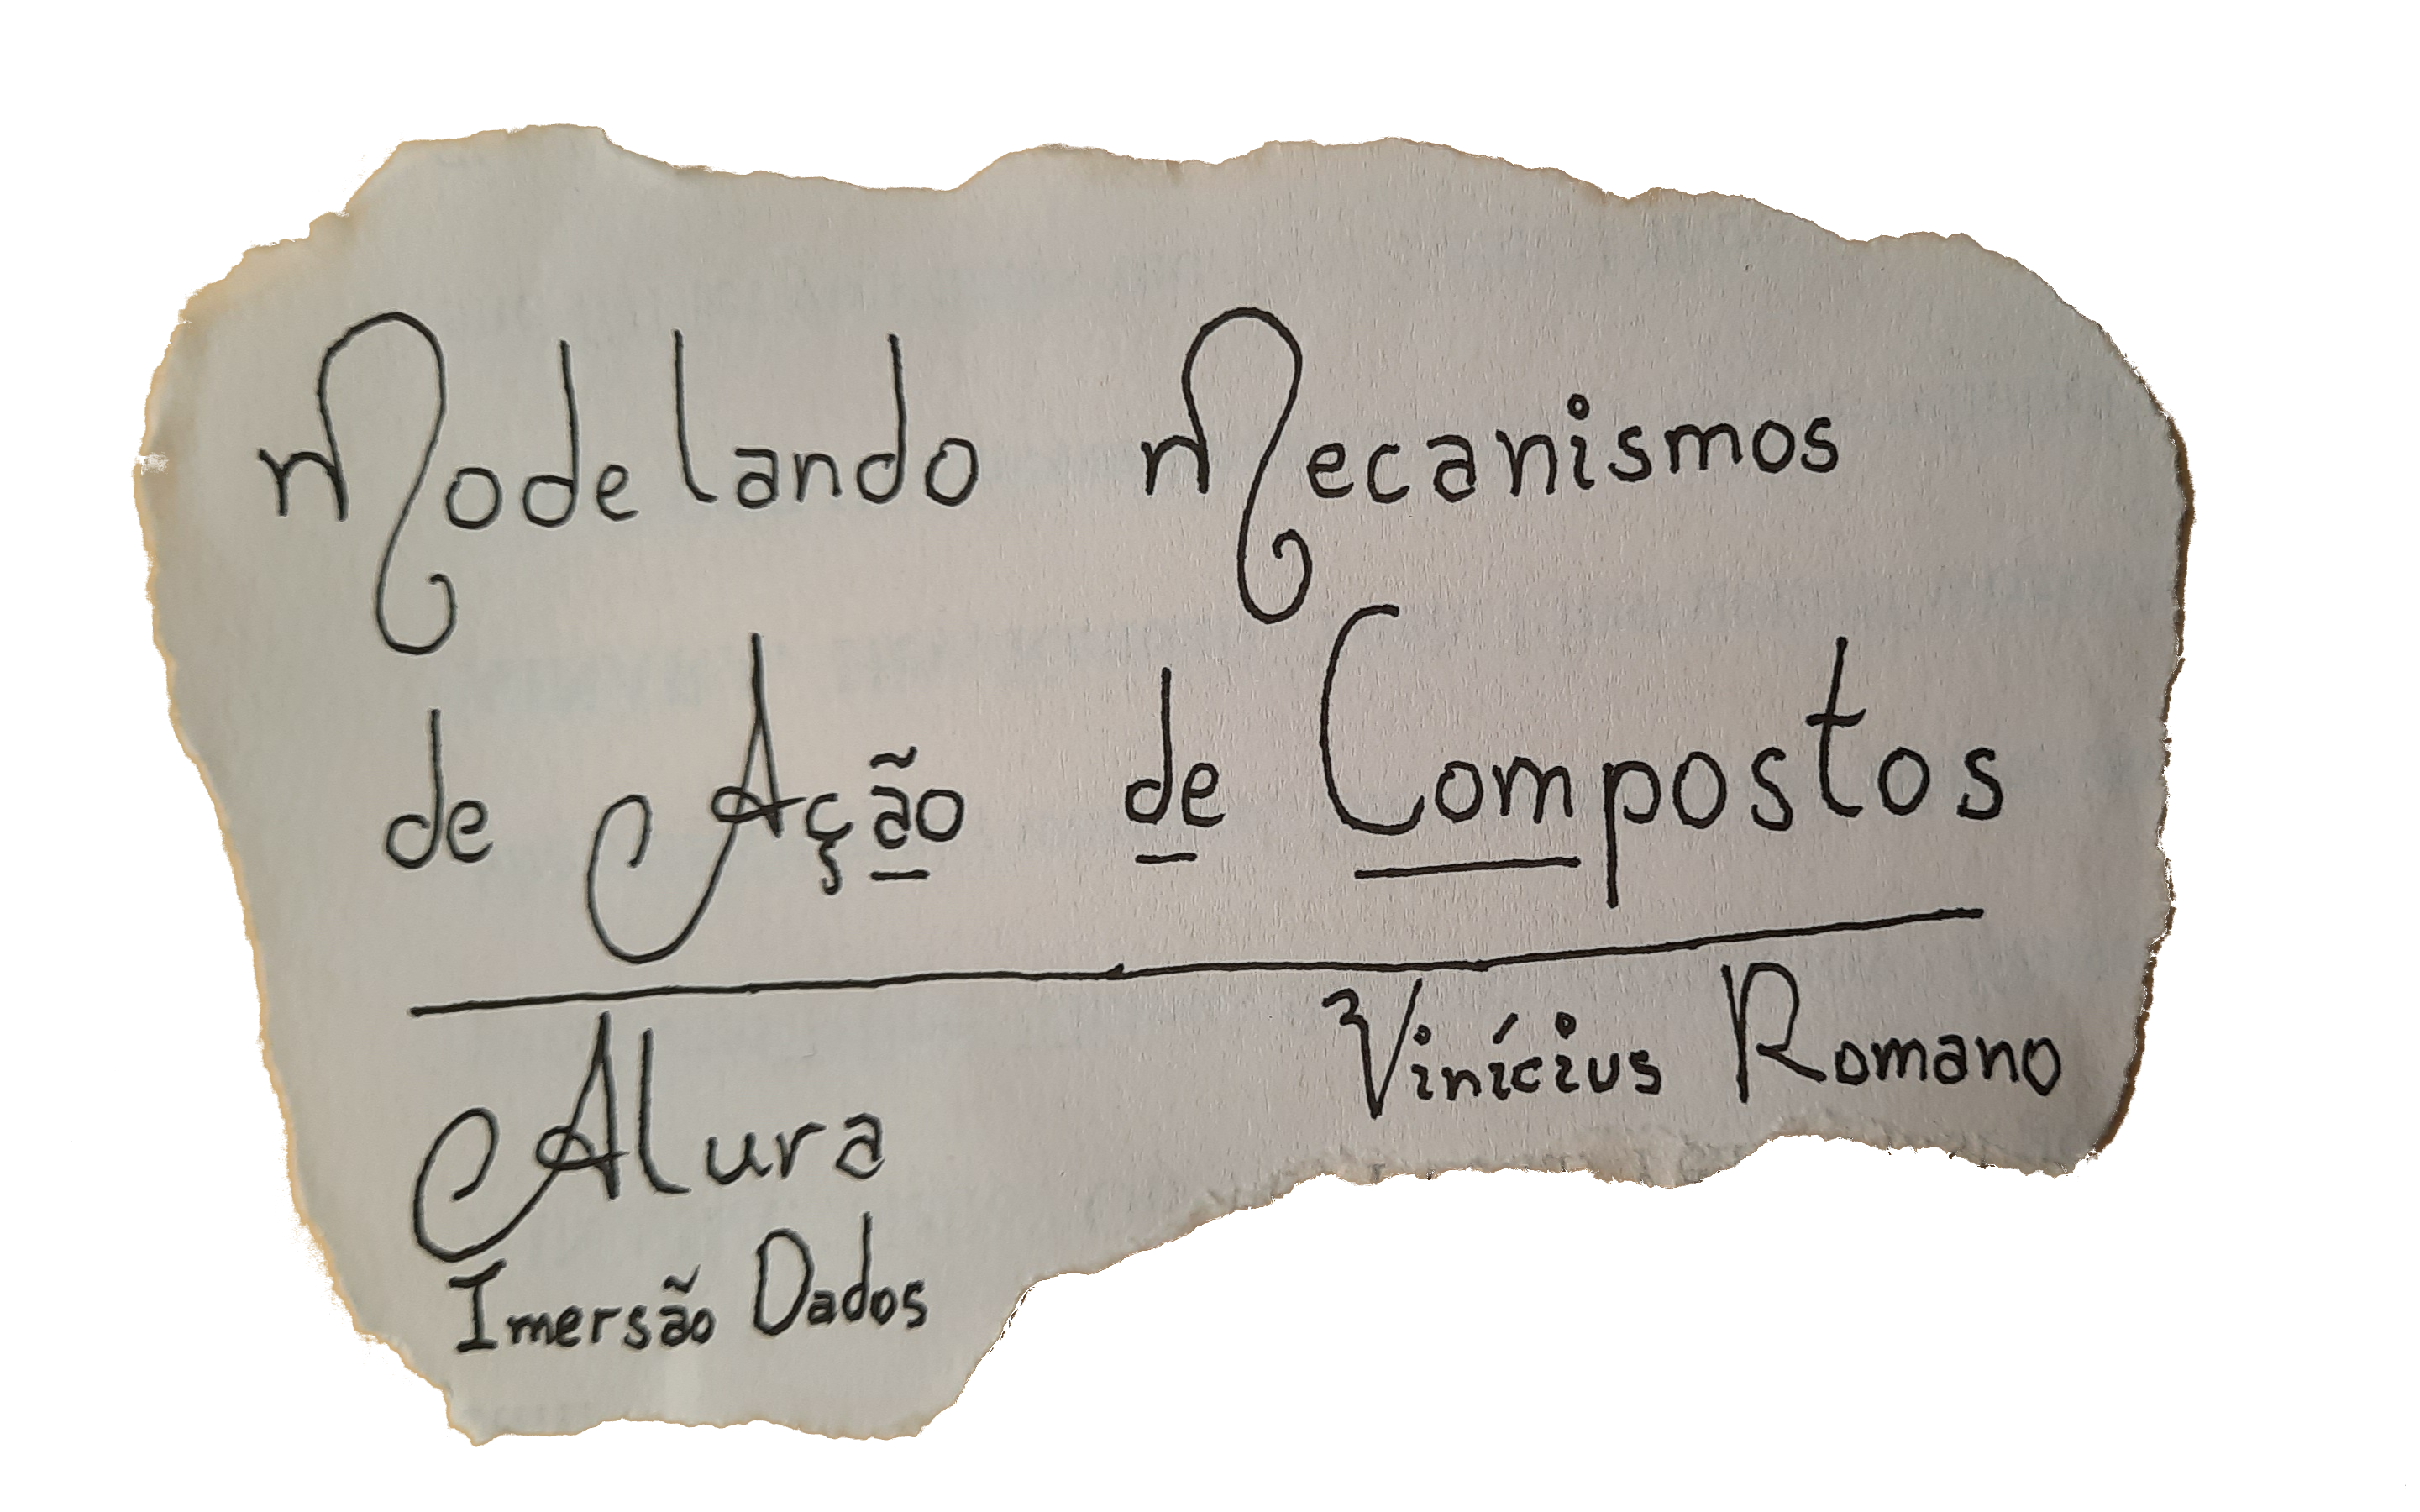 Modelando Mecanismos
de Ação de Compostos
Vinícius Romano
Alura
Imersão Dados